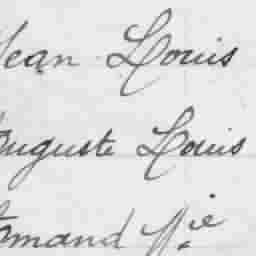 Jean Louis
Auguste Louis
Armand Nie